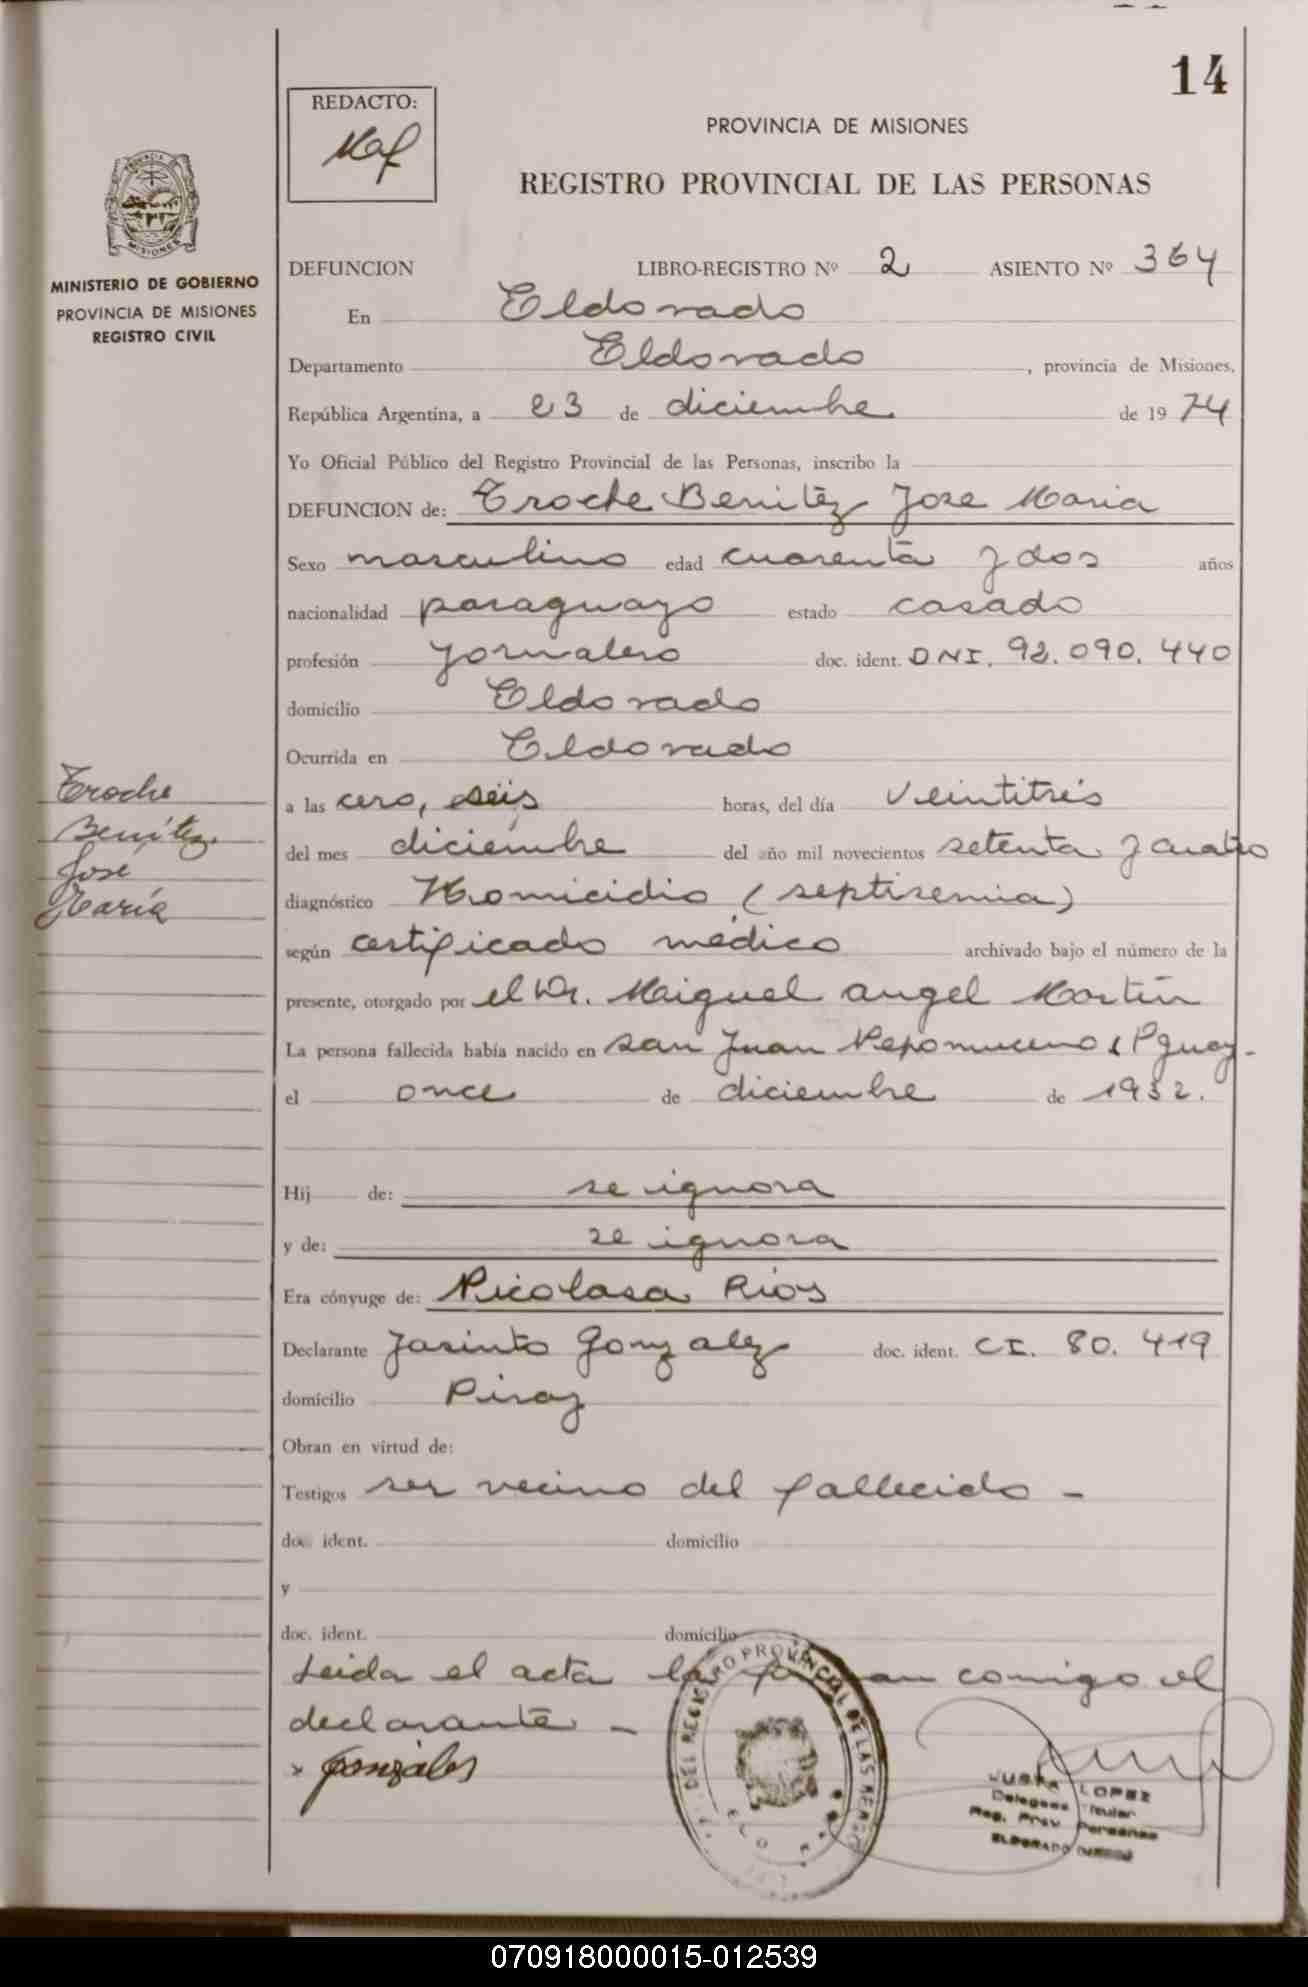 14
REDACTO:
PROVINCIA DE MISIONES
REGISTRO PROVINCIAL DE LAS PERSONAS
MINISTERIO DE GOBIERNO
PROVINCIA DE MISIONES
REGISTRO CIVIL
DEFUNCION LIBRO-REGISTRO Nº 2 ASIENTO Nº 364
En Eldorado
Departamento Eldorado, provincia de Misiones,
República Argentina, a 23 de diciembre de 1974
Yo Oficial Público del Registro Provincial de las Personas, inscribo la
DEFUNCION de: Troche Benitez Jose Maria
Sexo masculino edad cuarenta y dos años
nacionalidad paraguayo estado casado
profesión Jornalero doc. ident. DNI. 92.090.440
domicilio Eldorado
Ocurrida en Eldorado
Troche
Benítez
José
María
a las cero, seis horas, del día veintitrés
del mes diciembre del año mil novecientos setenta y cuatro
diagnóstico Homicidio (septisemia)
según certificado médico archivado bajo el número de la
presente, otorgado por el Dr. Miguel angel Martin
La persona fallecida había nacido en san Juan Nepomuceno (Pguay-
el once de diciembre de 1932.
Hij de: se ignora
y de: se ignora
Era cónyuge de: Nicolasa Rios
Declarante Jasinto Gonzalez doc. ident. CI. 80.419
domicilio Piray
Obran en virtud de:
Testigos ser vecino del fallecido -
doc. ident. domicilio
y
doc. ident. domicilio
Leida el acta la firman comigo el
declarante -
x Gonzáles
DEL REGISTRO PROVINCIAL DE LAS PERSO
LOPEZ
Delegada Titular
Reg. Prov. Personas
ELDORADO
070918000015-012539